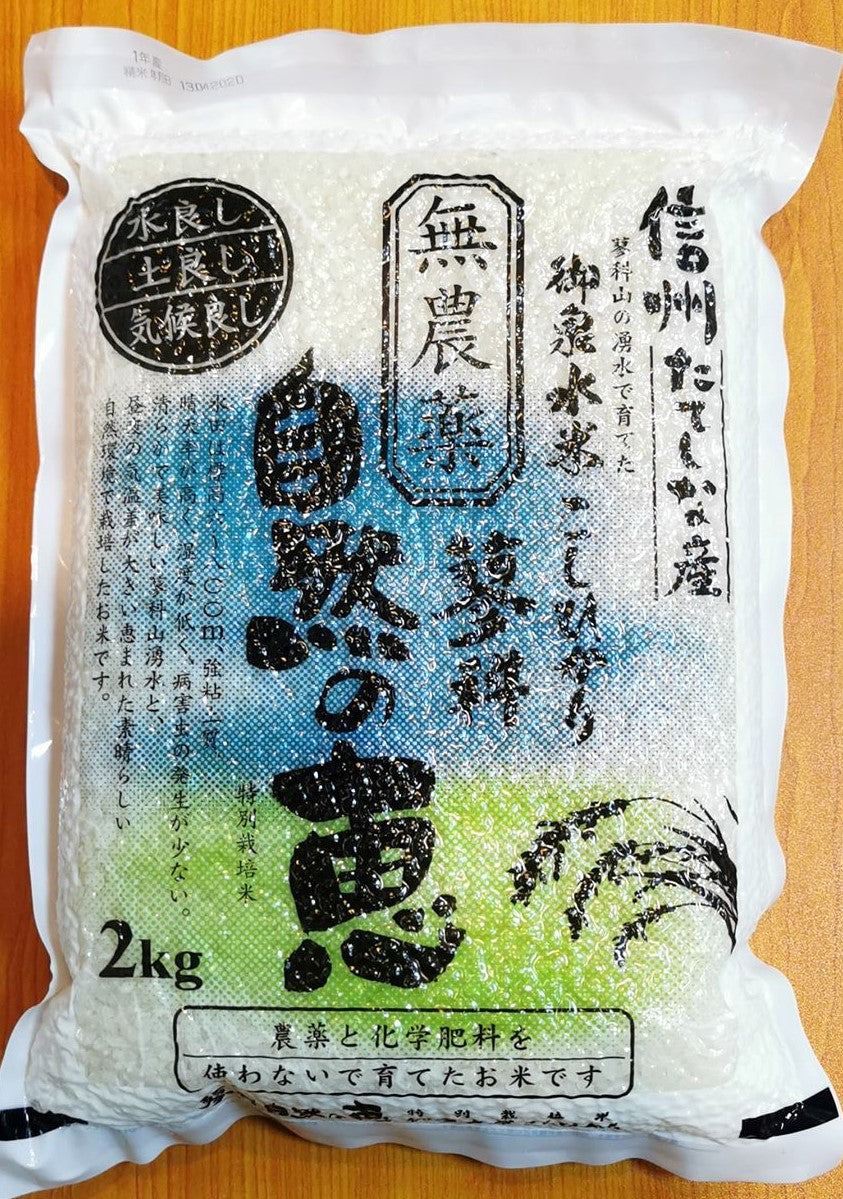 1年産
精米年月日 13.04.2020
信州たてしな産
蓼科山の湧水で育てた
御泉水米こしひかり
無農薬
蓼科
自然の恵
水良し
土良し
気候良し
特別栽培米
晴天率が高く、湿度が低く、病害虫の発生が少ない。
清らかで美味しい蓼科山湧水と、
昼夜の気温差が大きい恵まれた素晴らしい
自然環境で栽培したお米です。
2kg
農薬と化学肥料を
使わないで育てたお米です
特別栽培米